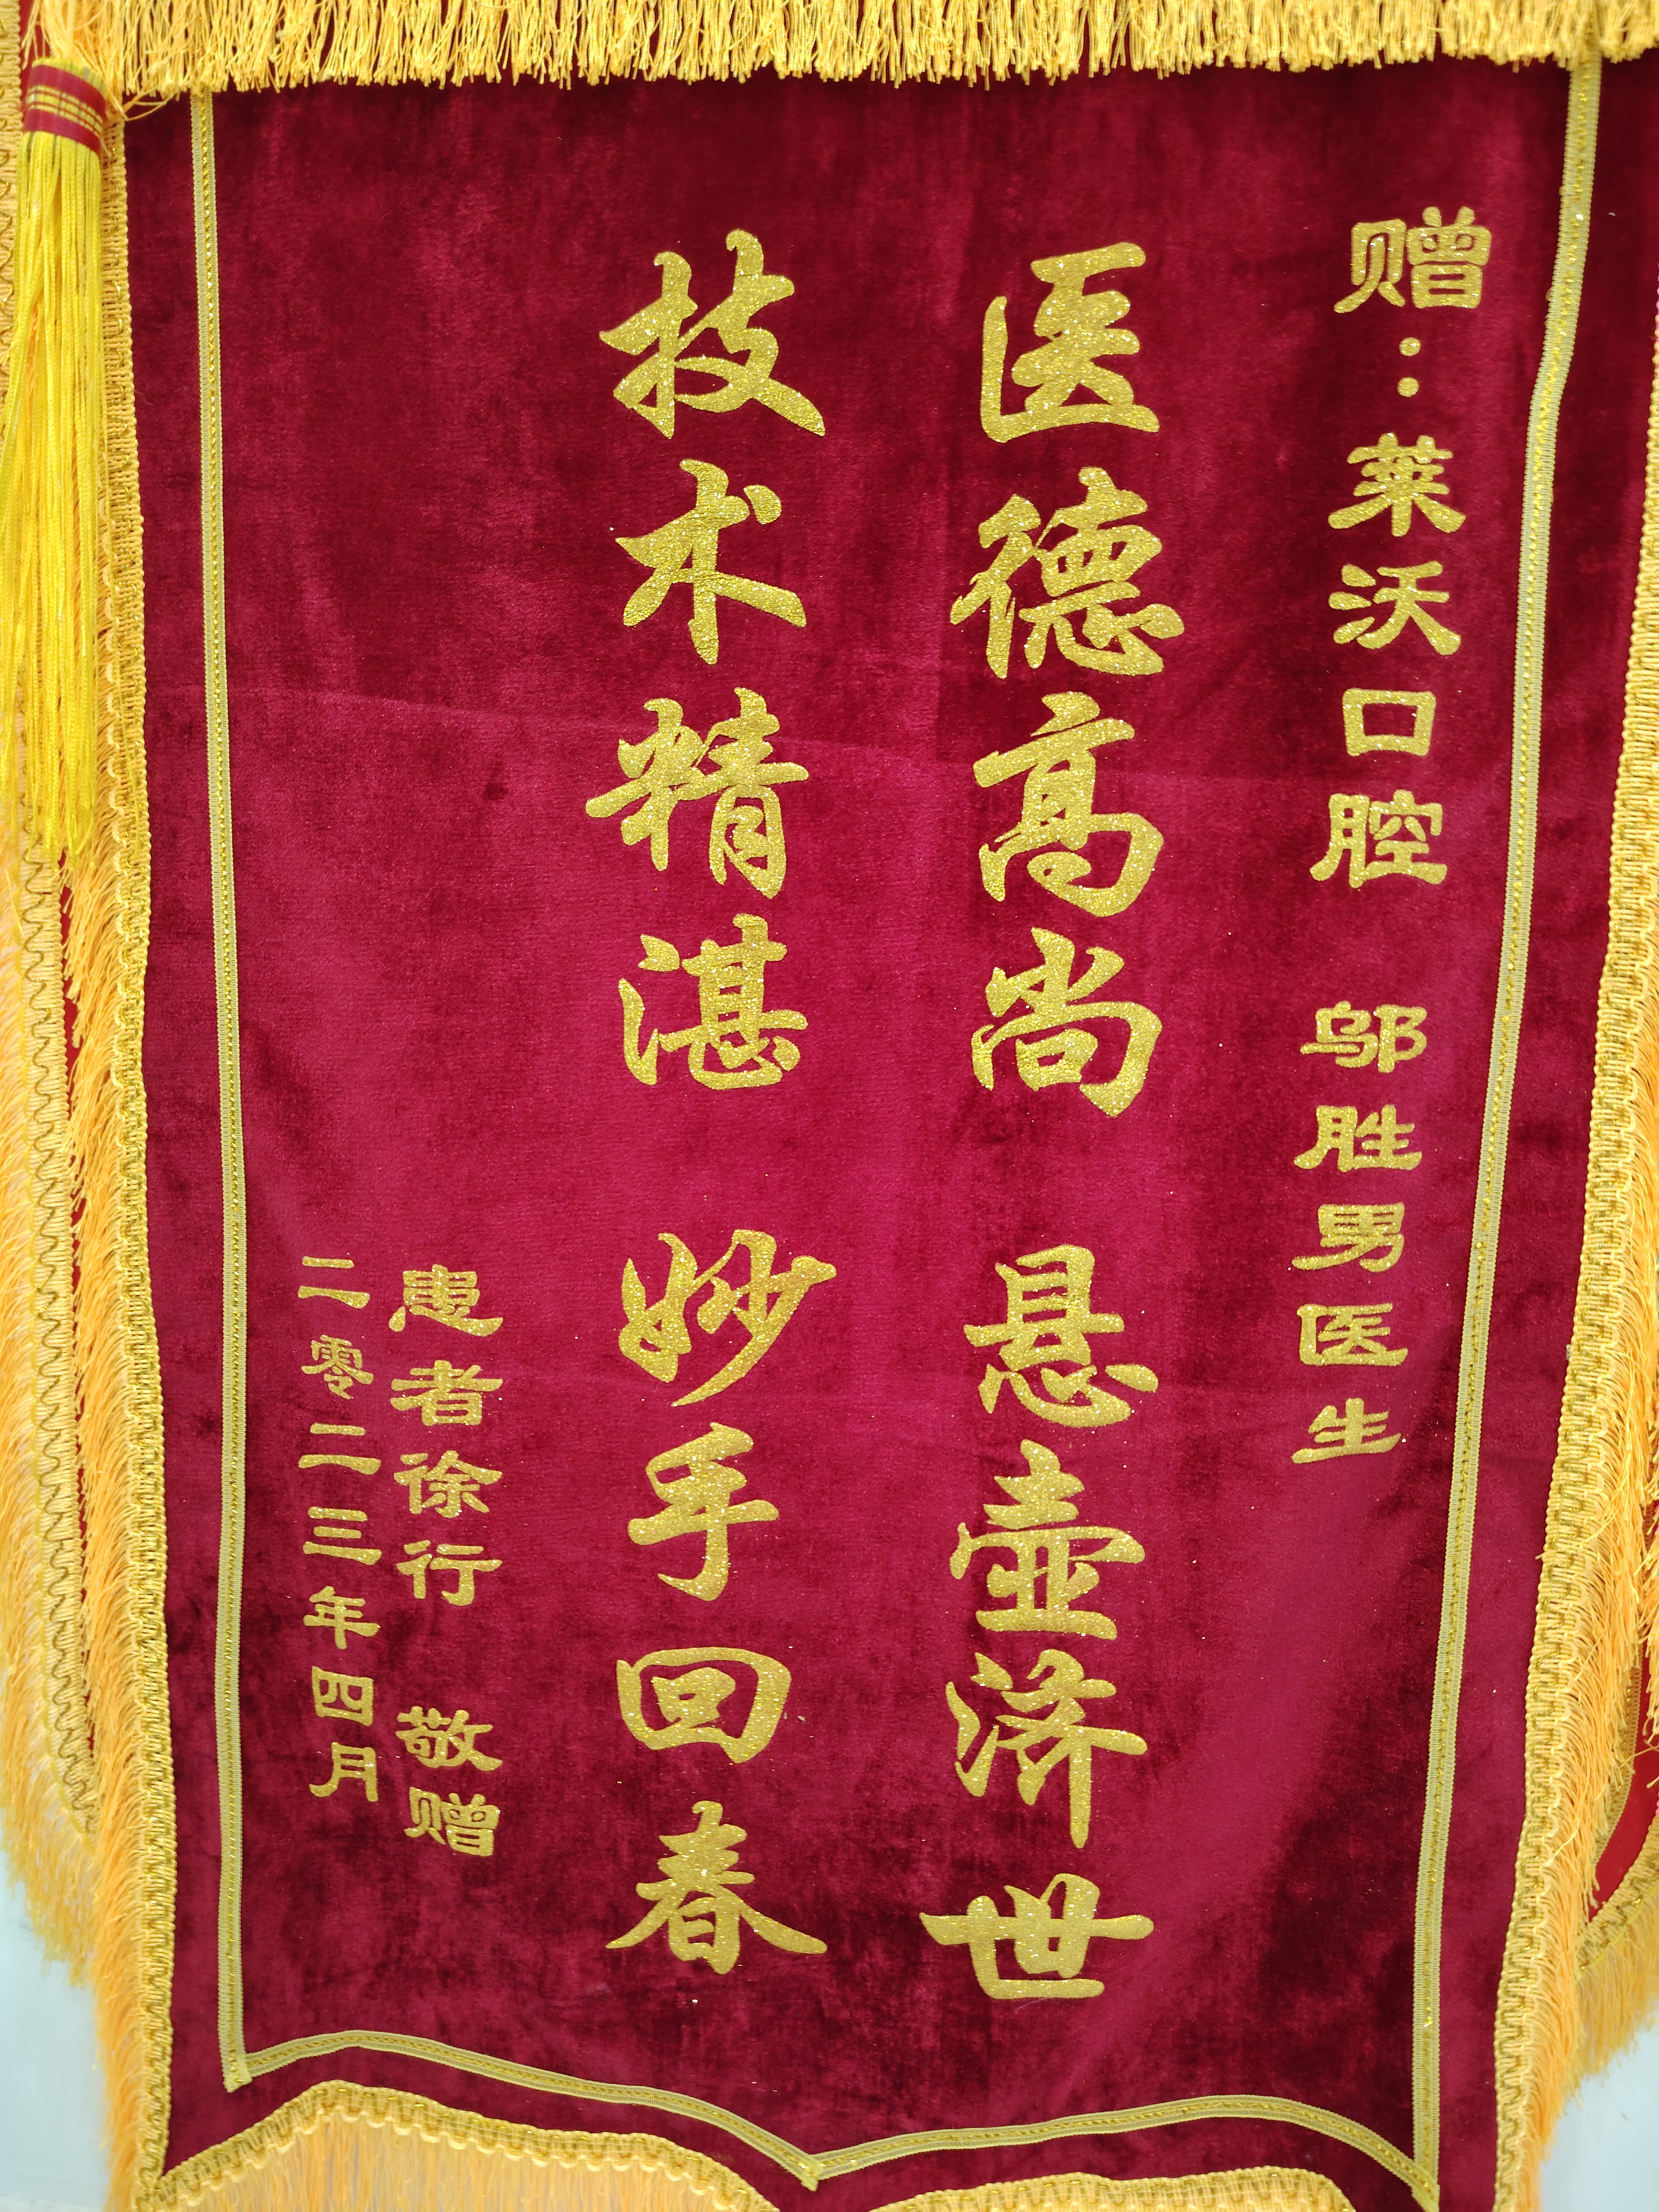 赠：莱沃口腔 邬胜男医生
医德高尚 悬壶济世
技术精湛 妙手回春
患者徐行 敬赠
二零二三年四月